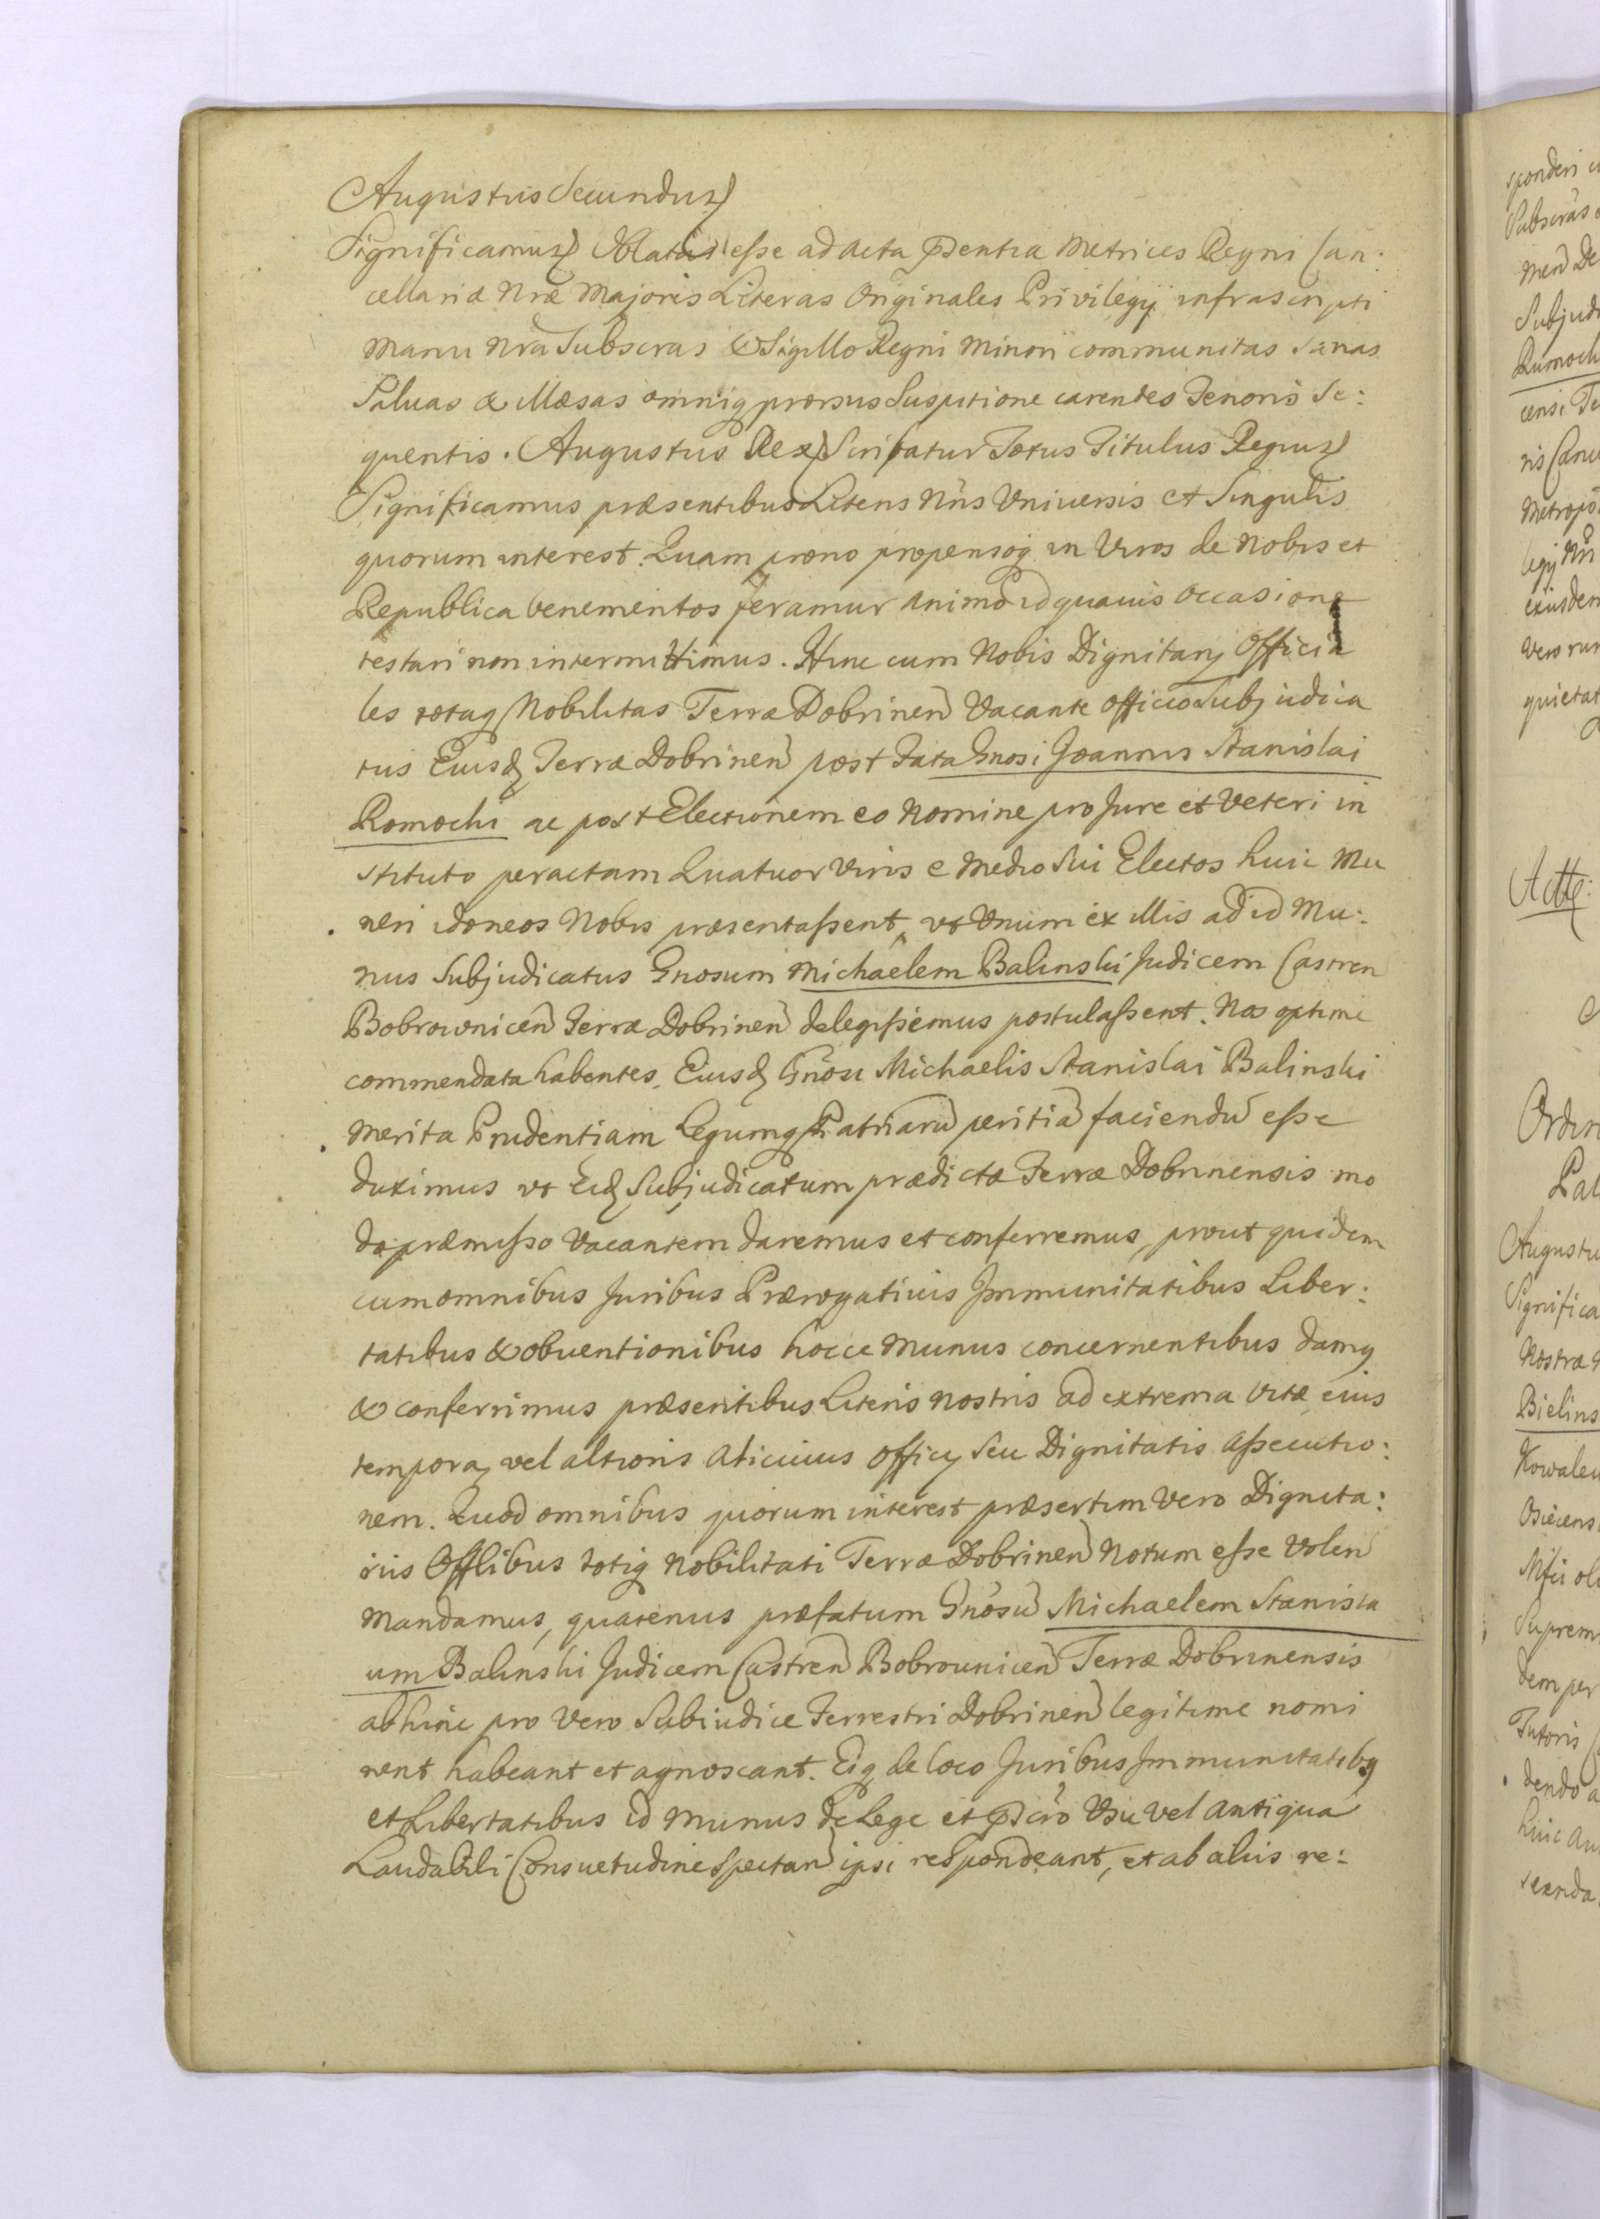 Augustus Secundus
Significamus Oblatas esse ad Acta psentia Metrices Regni Can:
cellariæ Nræ Majoris Literas Originales Privilegij infrascripti
Manu Nra Subscras & Sigillo Regni Minori communitas Sanas
Saluas & Illæsas omniq prorsus Suspitione carentes Tenoris Se:
quentis. Augustus Rex Scribatur Totus Titulus Regius
Significamus præsentibus Literis Nris Vniuersis et Singulis
quorum interest. Quam prono propensoq in Viros de Nobis et
Republica benemeritos feramur Animo id quauis Occasione
testari non intermittimus. Hinc cum Nobis Dignitarij Officia
les totaq Nobilitas Terræ Dobrinen Vacante Officio Subjudica
tus Eiusd Terræ Dobrinen post Fata Gnosi Joannis Stanislai
Romocki ac post Electionem eo Nomine pro Jure et Veteri in
stituto peractam Quatuor Viris e Medio Sui Electos huic Mu
neri idoneos Nobis præsentassent, vt Vnum ex illis ad id Mu:
nus Subjudicatus Gnosum Michaelem Balinski Judicem Castren
Bobrownicen Terræ Dobrinen delegissemus postulassent. Nos optime
commendata habentes, Eiusd Gnosi Michaelis Stanislai Balinski
Merita Prudentiam Legumq Patriaru peritia faciendu esse
duximus vt Eid Subjudicatum prædictæ Terræ Dobrinensis mo
do præmisso Vacantem daremus et conferremus, prout quidem
cum omnibus Juribus Prærogatiuis Immunitatibus Liber:
tatibus & obuentionibus hocce Munus concernentibus damq
& conferrimus præsentibus Literis nostris ad extrema Vitæ eius
tempora, vel altioris Alicuius Officij Seu Dignitatis Assecutio:
nem. Quod omnibus quorum interest præsertim Vero Dignita:
riis Offlibus totiq Nobilitati Terræ Dobrinen Notum esse Volen
Mandamus, quatenus præfatum Gnosu Michaelem Stanisla
um Balinski Judicem Castren Bobrounicen Terræ Dobrinensis
abhinc pro Vero Subiudice Terrestri Dobrinen legitime nomi
nent habeant et agnoscant. Eiq de loco Juribus Immunitatibq
et Libertatibus id Munus de Lege et pscro Vsu vel Antiqua
Laudabili Consuetudine Spectan ipsi respondeant, et ab aliis re: